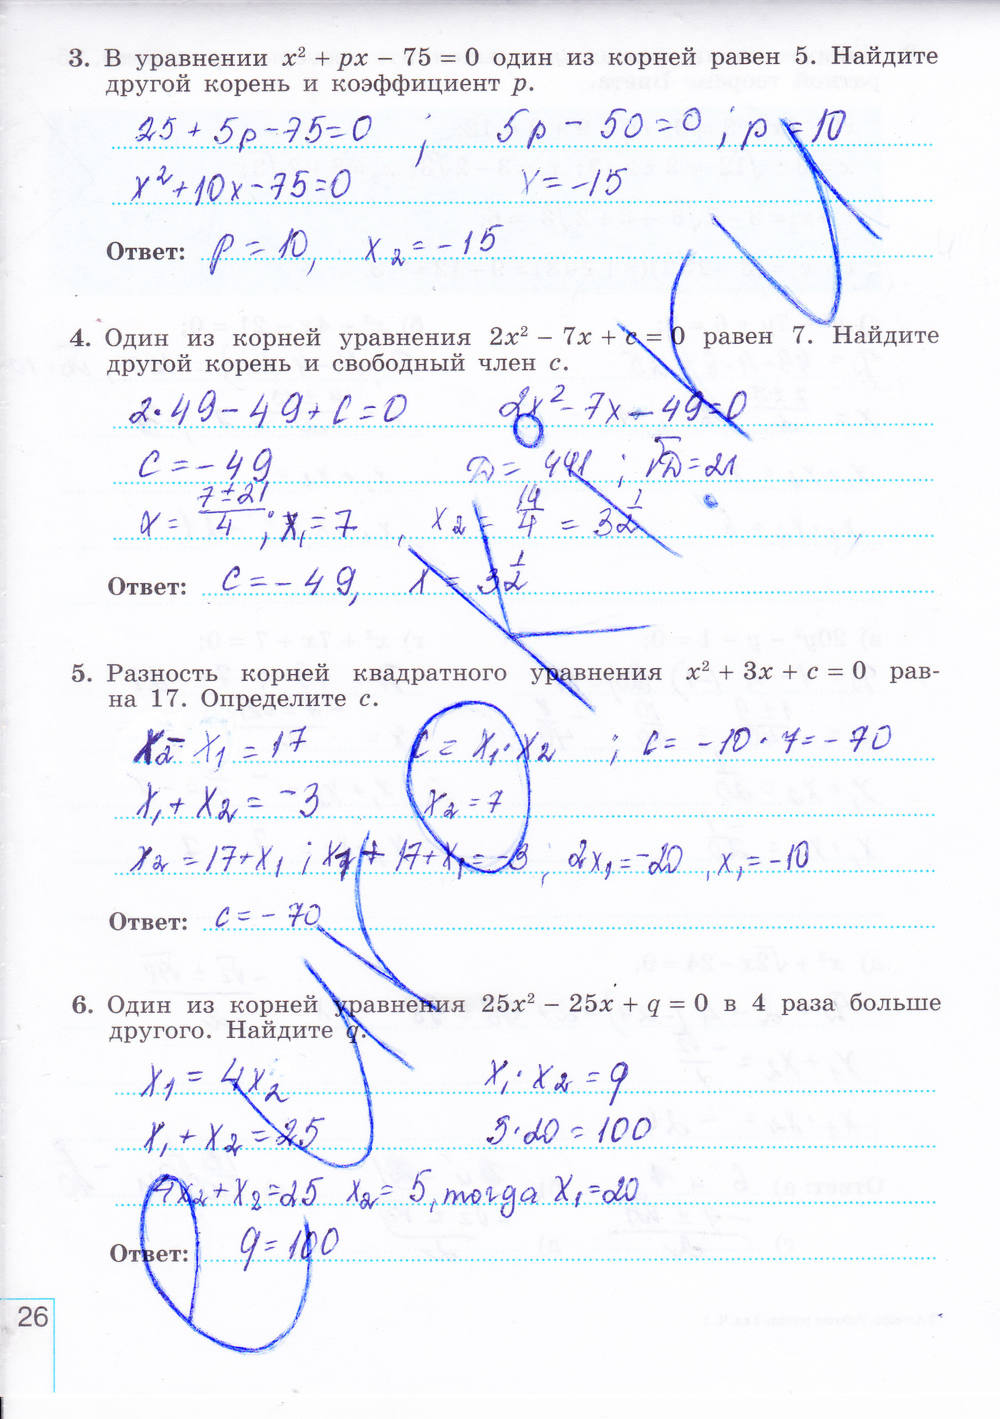 3. В уравнении x² + px − 75 = 0 один из корней равен 5. Найдите
другой корень и коэффициент p.
25 + 5p − 75 = 0 ; 5p − 50 = 0 ; p = 10
x² + 10x − 75 = 0 x = −15
Ответ: p = 10, x₂ = −15
4. Один из корней уравнения 2x² − 7x + c = 0 равен 7. Найдите
другой корень и свободный член c.
2·49 − 49 + c = 0 2x² − 7x − 49 = 0
c = −49 D = 441 ; √D = 21
x = (7 ± 21)/4 ; x₁ = 7, x₂ = 14/4 = 3 1/2
Ответ: c = −49, x = 3 1/2
5. Разность корней квадратного уравнения x² + 3x + c = 0 рав-
на 17. Определите c.
x₂ − x₁ = 17 c = x₁·x₂ ; c = −10·7 = −70
x₁ + x₂ = −3 x₂ = 7
x₂ = 17 + x₁ ; x₁ + 17 + x₁ = −3 ; 2x₁ = −20, x₁ = −10
Ответ: c = −70
6. Один из корней уравнения 25x² − 25x + q = 0 в 4 раза больше
другого. Найдите q.
x₁ = 4x₂ x₁·x₂ = q
x₁ + x₂ = 25 5·20 = 100
4x₂ + x₂ = 25 x₂ = 5, тогда x₁ = 20
Ответ: q = 100
26